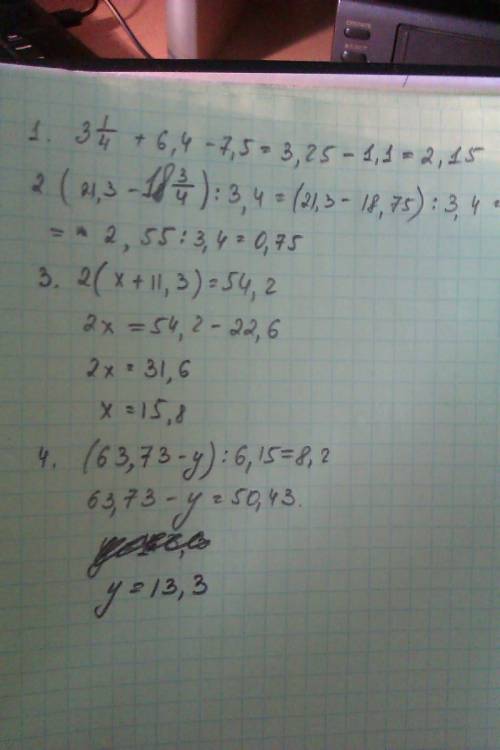 1. 3 1/4 + 6,4 - 7,5 = 3,25 - 1,1 = 2,15
2 ( 21,3 - 18 3/4 ) : 3,4 = (21,3 - 18,75) : 3,4 =
= - 2,55 : 3,4 = 0,75
3. 2(x + 11,3) = 54,2
2x = 54,2 - 22,6
2x = 31,6
x = 15,8
4. (63,73 - y) : 6,15 = 8,2
63,73 - y = 50,43.
y = 13,3